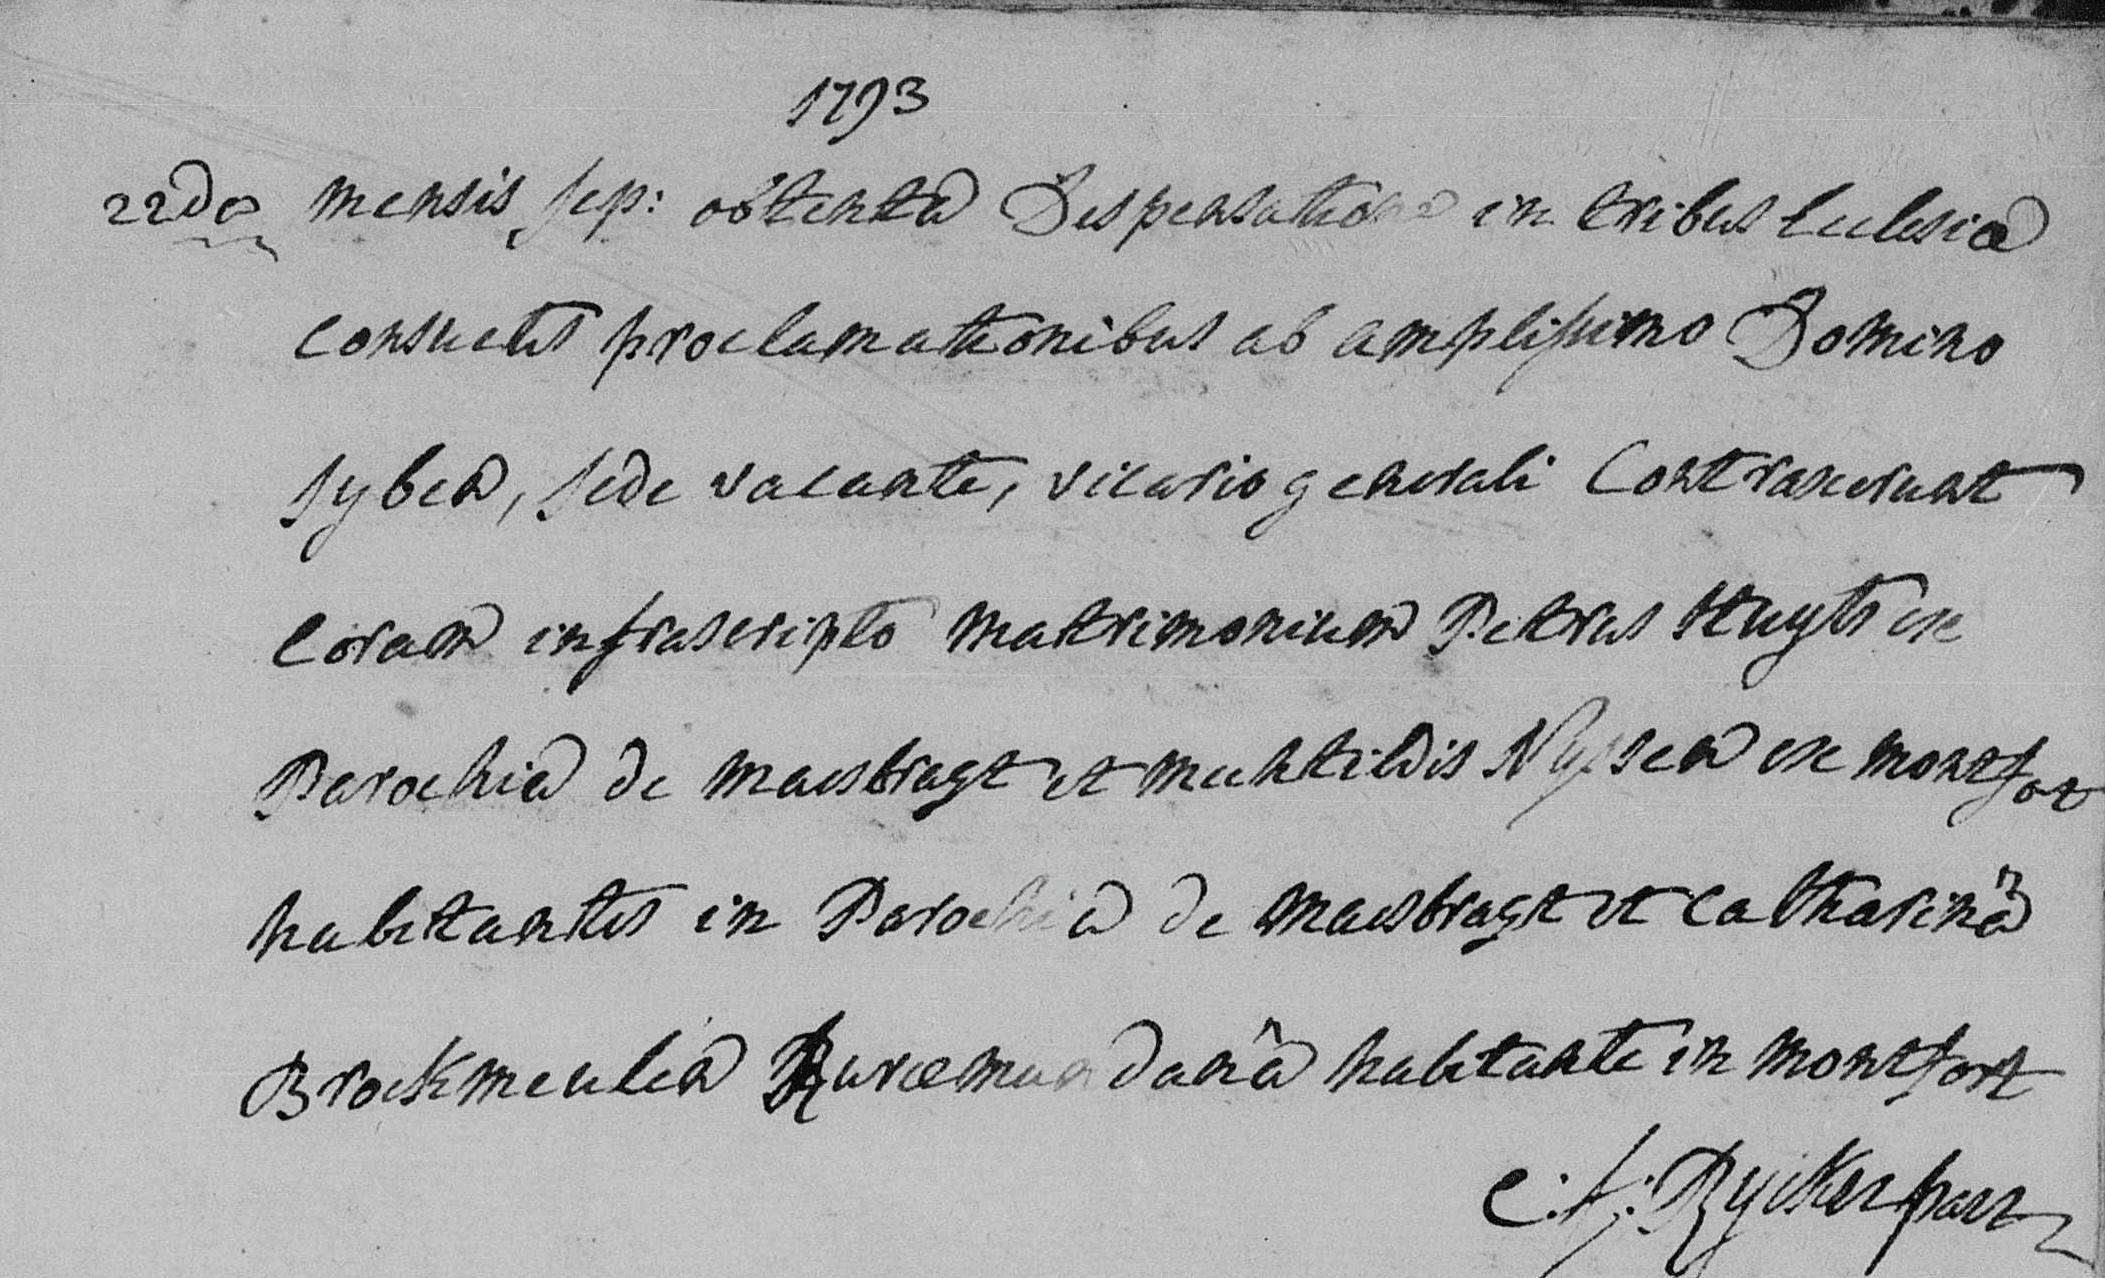 1793
22da mensis sep: obtenta Dispensatione in tribus Ecclesiæ
consuetis proclamationibus ab amplissimo Domino
Syben, sede vacante, vicario generali Contraxerunt
coram infrascripto matrimonium Petrus Huyts ex
Parochia de maesbragt et mechtildis Nyssen ex montfort
habitantes in Parochia de maesbragt et catharinâ
Brockmeulen Ruræmundanâ habitante in montfort